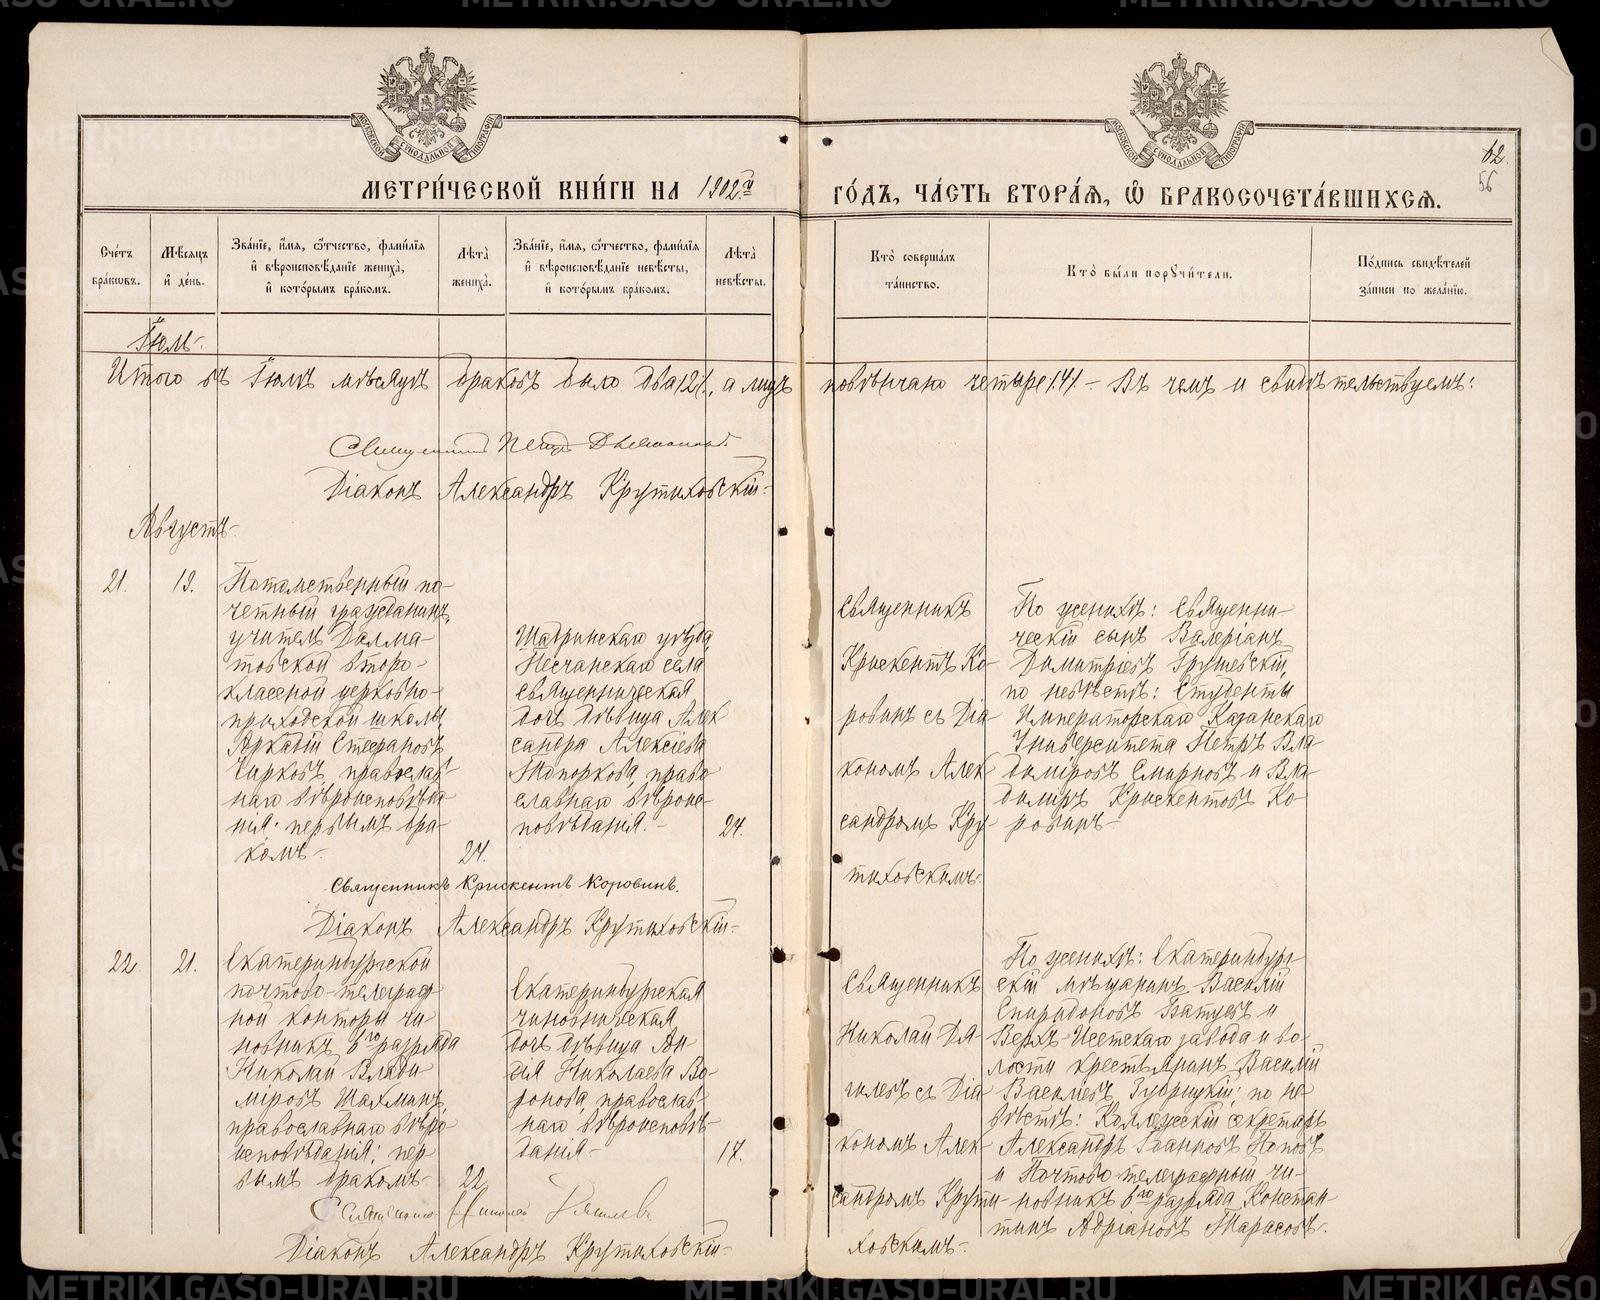 МЕТРИ́ЧЕСКОЙ КНИ́ГИ НА 1902.й
ГО́ДЪ, ЧА́СТЬ ВТОРА́Я, Ѡ БРАКОСОЧЕТА́ВШИХСЯ.
62.
56
Сче́тъ бра́ковъ.
Мѣ́сяцъ и҆ де́нь.
Зва́нїе, и҆́мя, ѻ҆́тчество, фами́лїя и҆ вѣроисповѣ́данїе жениха̀, и҆ кото́рымъ бра́комъ.
Лѣ́та̀ жениха̀.
Зва́нїе, и҆́мя, ѻ҆́тчество, фами́лїя и҆ вѣроисповѣ́данїе невѣ́сты, и҆ кото́рымъ бра́комъ.
Лѣ́та̀ невѣ́сты.
Кто̀ соверша́лъ та́инство.
Кто̀ бы́ли порꙋчи́тели.
По́дпись свидѣ́телей за́писи по жела́нїю.
Іюль.
Итого въ Іюлѣ мѣсяцѣ браковъ было два /2/, а лицъ повѣнчано четыре /4/. – Въ чемъ и свидѣтельствуемъ:
Священникъ Петръ
Діаконъ Александръ Крутиховскій.
Августъ.
21.
19.
Потомственный по-
четный гражданинъ,
учитель Далма-
товской второ-
классной церковно-
приходской школы,
Аркадій Стефановъ
Чирковъ, православ-
наго вѣроисповѣда-
нія: первымъ бра-
комъ.
24.
Шадринскаго уѣзда,
Песчанскаго села
священническая
дочь дѣвица Алек
сандра Алексіева
Топоркова, право
славнаго вѣроис-
повѣданія. –
24.
Священникъ
Крискентъ Ко-
ровинъ съ Діа-
кономъ Алек-
сандромъ Кру-
тиховскимъ.
По женихѣ: Священни-
ческій сынъ Валеріанъ
Димитріевъ Грушевскій,
по невѣстѣ: Студенты
Императорскаго Казанскаго
Университета Петръ Вла-
диміровъ Смирновъ и Вла-
димиръ Крискентовъ Ко-
ровинъ –
Священникъ Крискентъ Коровинъ.
Діаконъ Александръ Крутиховскій.
22
21.
Екатеринбургской
почтово-телеграф
ной конторы чи
новникъ 6го разряда
Николай Влади
міровъ Шахминъ,
православнаго вѣро-
исповѣданія; пер-
вымъ бракомъ.
22
Екатеринбургская
чиновническая
дочь дѣвица Ли
дія Николаева Во-
ронова, православ-
наго вѣроисповѣ-
данія –
17.
Священникъ
Николай Дя-
гилевъ съ Діа
кономъ Алек-
сандромъ Крути-
ховскимъ.
По женихѣ: Екатеринбург
скій мѣщанинъ Василій
Спиридоновъ Батуевъ и
Верхъ-Исетскаго завода и во-
лости крестьянинъ Василій
Васильевъ Зубрицкій; по не
вѣстѣ: Коллежскій секретарь
Александръ Іоанновъ Поповъ
и Почтово телеграфный чи-
новникъ 6го разряда Констан-
тинъ Адріановъ Тарасовъ.
Священникъ Николай Дягилевъ
Діаконъ Александръ Крутиховскій.